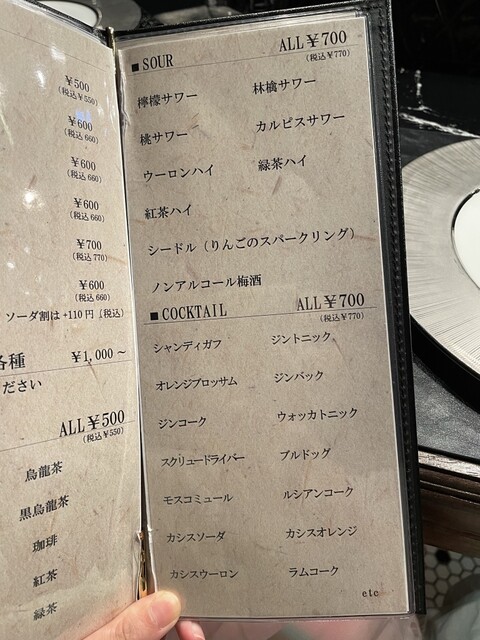 ¥500
(税込¥550)
¥600
(税込 660)
¥600
(税込 660)
¥600
(税込 660)
¥700
(税込 770)
¥600
(税込 660)
ソーダ割は +110 円 (税込)
各種 ¥1,000～
ださい
ALL¥500
(税込¥550)
烏龍茶
黒烏龍茶
珈琲
紅茶
緑茶
■SOUR ALL¥700
(税込¥770)
檸檬サワー 林檎サワー
桃サワー カルピスサワー
ウーロンハイ 緑茶ハイ
紅茶ハイ
シードル（りんごのスパークリング）
ノンアルコール梅酒
■COCKTAIL ALL¥700
(税込¥770)
シャンディガフ ジントニック
オレンジブロッサム ジンバック
ジンコーク ウォッカトニック
スクリュードライバー ブルドッグ
モスコミュール ルシアンコーク
カシスソーダ カシスオレンジ
カシスウーロン ラムコーク
etc